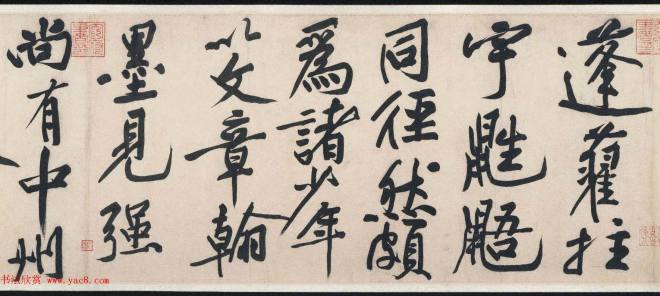 蓬藋拄
宇鼪鼯
同徑然頗
爲諸少年
以文章翰
墨見强
尚有中州
书法欣赏 www.yac8.com